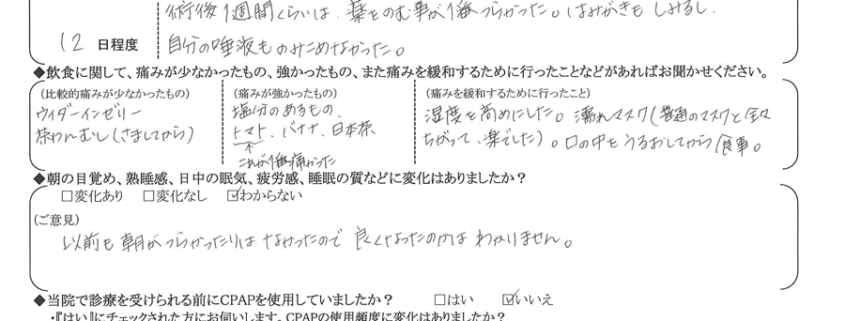 術後1週間くらいは、薬をのむ事が1番つらかった。はみがきもしみるし、
12 日程度
自分の唾液ものみこめなかった。
◆飲食に関して、痛みが少なかったもの、強かったもの、また痛みを緩和するために行ったことなどがあればお聞かせください。
(比較的痛みが少なかったもの)
ウイダーインゼリー
茶わんむし(さましてから)
(痛みが強かったもの)
塩分のあるもの、
トマト、バナナ、日本茶
これが1番痛かった
(痛みを緩和するために行ったこと)
湿度を高めにした。濡れマスク(普通のマスクと全々
ちがって、楽でした)。口の中をうるおしてから食事。
◆朝の目覚め、熟睡感、日中の眠気、疲労感、睡眠の質などに変化はありましたか？
□変化あり □変化なし ☑わからない
(ご意見)
以前も朝がつらかったりはなかったので良くなったのかはわかりません。
◆当院で診療を受けられる前にCPAPを使用していましたか？ □はい ☑いいえ
・『はい』にチェックされた方にお伺いします。CPAPの使用頻度に変化はありましたか？